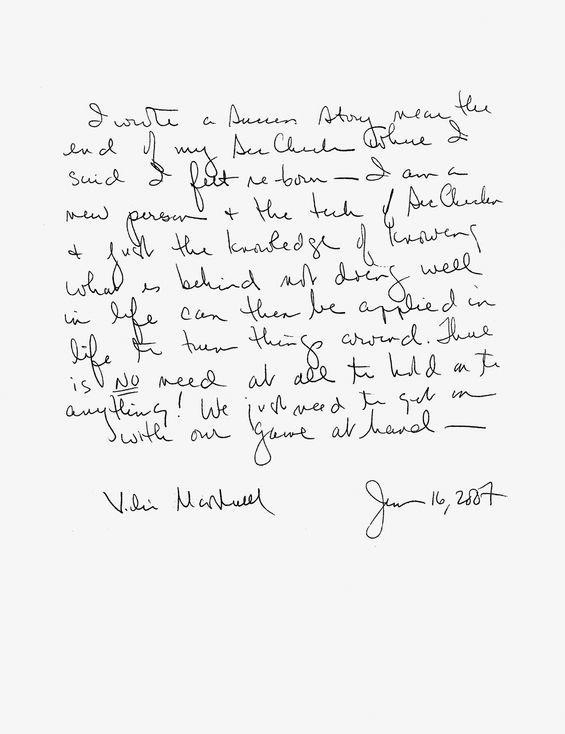 I wrote a Success Story near the
end of my Sec Checks where I
said I felt re-born — I am a
new person + the tech of Sec Checks
+ just the knowledge of knowing
what is behind not doing well
in life can then be applied in
life to turn things around. There
is NO need at all to hold on to
anything! We just need to get on
with our game at hand —
June 16, 2007